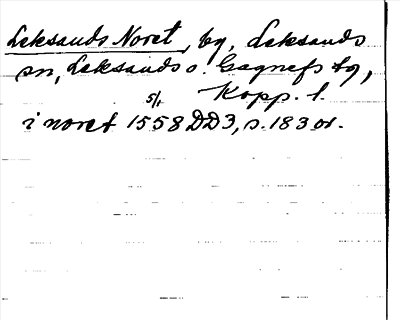 Leksands Noret, by, Leksands
sn, Leksands o. Gagnefs tg,
5/1 Kopp. l.
i noret 1558 DD3, s. 183 or.